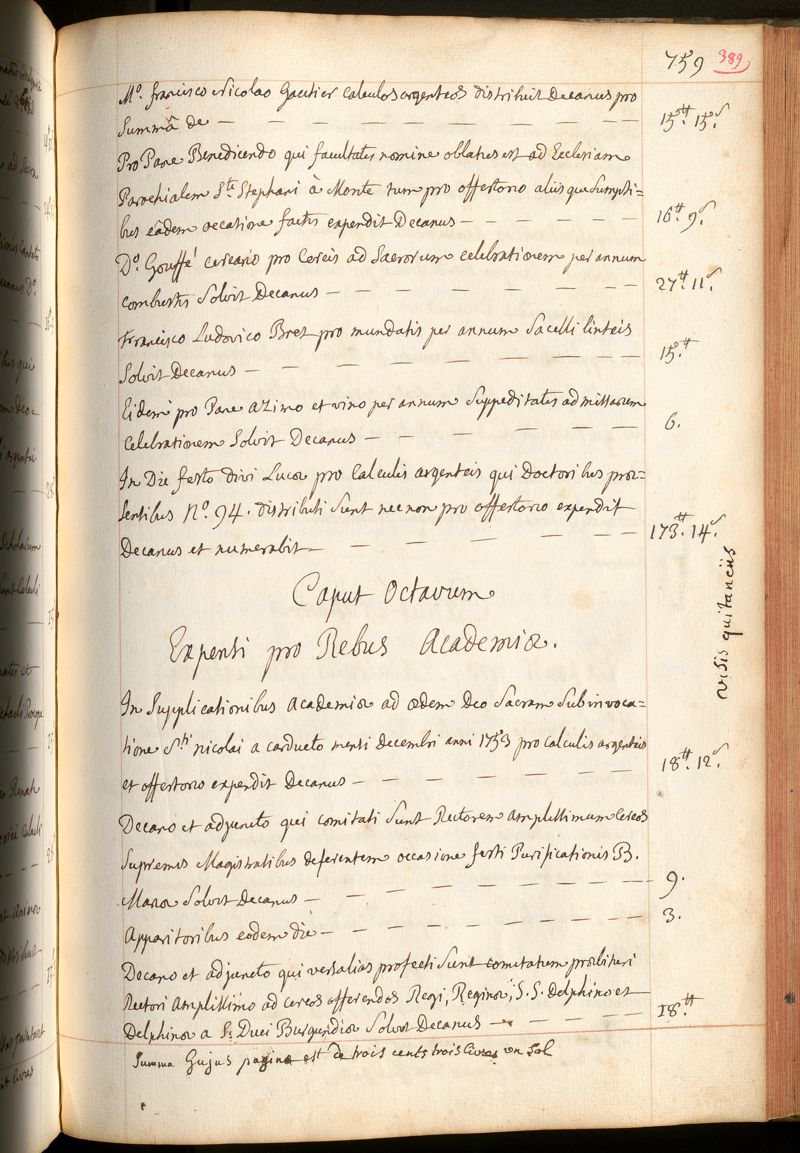 759 389
Mo. francisco Nicolao Gautier Calculos argenteos distribuit Decanus pro
Summâ de — 15tt. 15s.
Pro Pane Benedicendo qui facultatis nomine oblatus est ad Ecclesiam
Parochialem Sti. Stephani à Monte tum pro offertorio aliisque Sumpti=
bus eâdem occasione factis expendit Decanus — 16tt. 9s.
Do. Gouffé cereario pro Cereis ad Sacrorum celebrationem per annum
combustis Solvit Decanus — 27tt. 11s.
Francisco Ludovico Bret pro mundatis per annum Sacelli linteis
Solvit Decanus — 15tt.
Eidem pro Pane azimo et vino per annum Suppeditatis ad missarum
celebrationem Solvit Decanus — 6.
In Die festo divi Lucæ pro Calculis argenteis qui Doctoribus præ=
sentibus No. 94. distributi Sunt nec non pro offertorio expendit
Decanus et numerabit — 173tt. 14s.
Caput Octavum
Expensi pro Rebus Academiæ.
visis quitanciis
In Supplicationibus Academiæ ad ædem Deo Sacram Sub invoca=
tione Sti. nicolai a cardueto mensi decembri anni 1753 pro calculis argenteis
et offertorio expendit Decanus — 18tt. 12s.
Decano et adjuncto qui comitati Sunt Rectorem amplissimum Cereos
Supremis Magistratibus deferentem occasione festi Purificationis B.
Mariæ Solvit Decanus — 9.
Apparitoribus eodem die — 3.
Decano et adjuncto qui versalias profecti Sunt comitatum præbituri
Rectori Amplissimo ad cereos offerendos Regi, Reginæ, S.S. Delphino et
Delphinæ a S. Duci Burgundiæ Solvit Decanus — 18tt.
Summa Gujus pagina est de trois cents trois livres un Sol